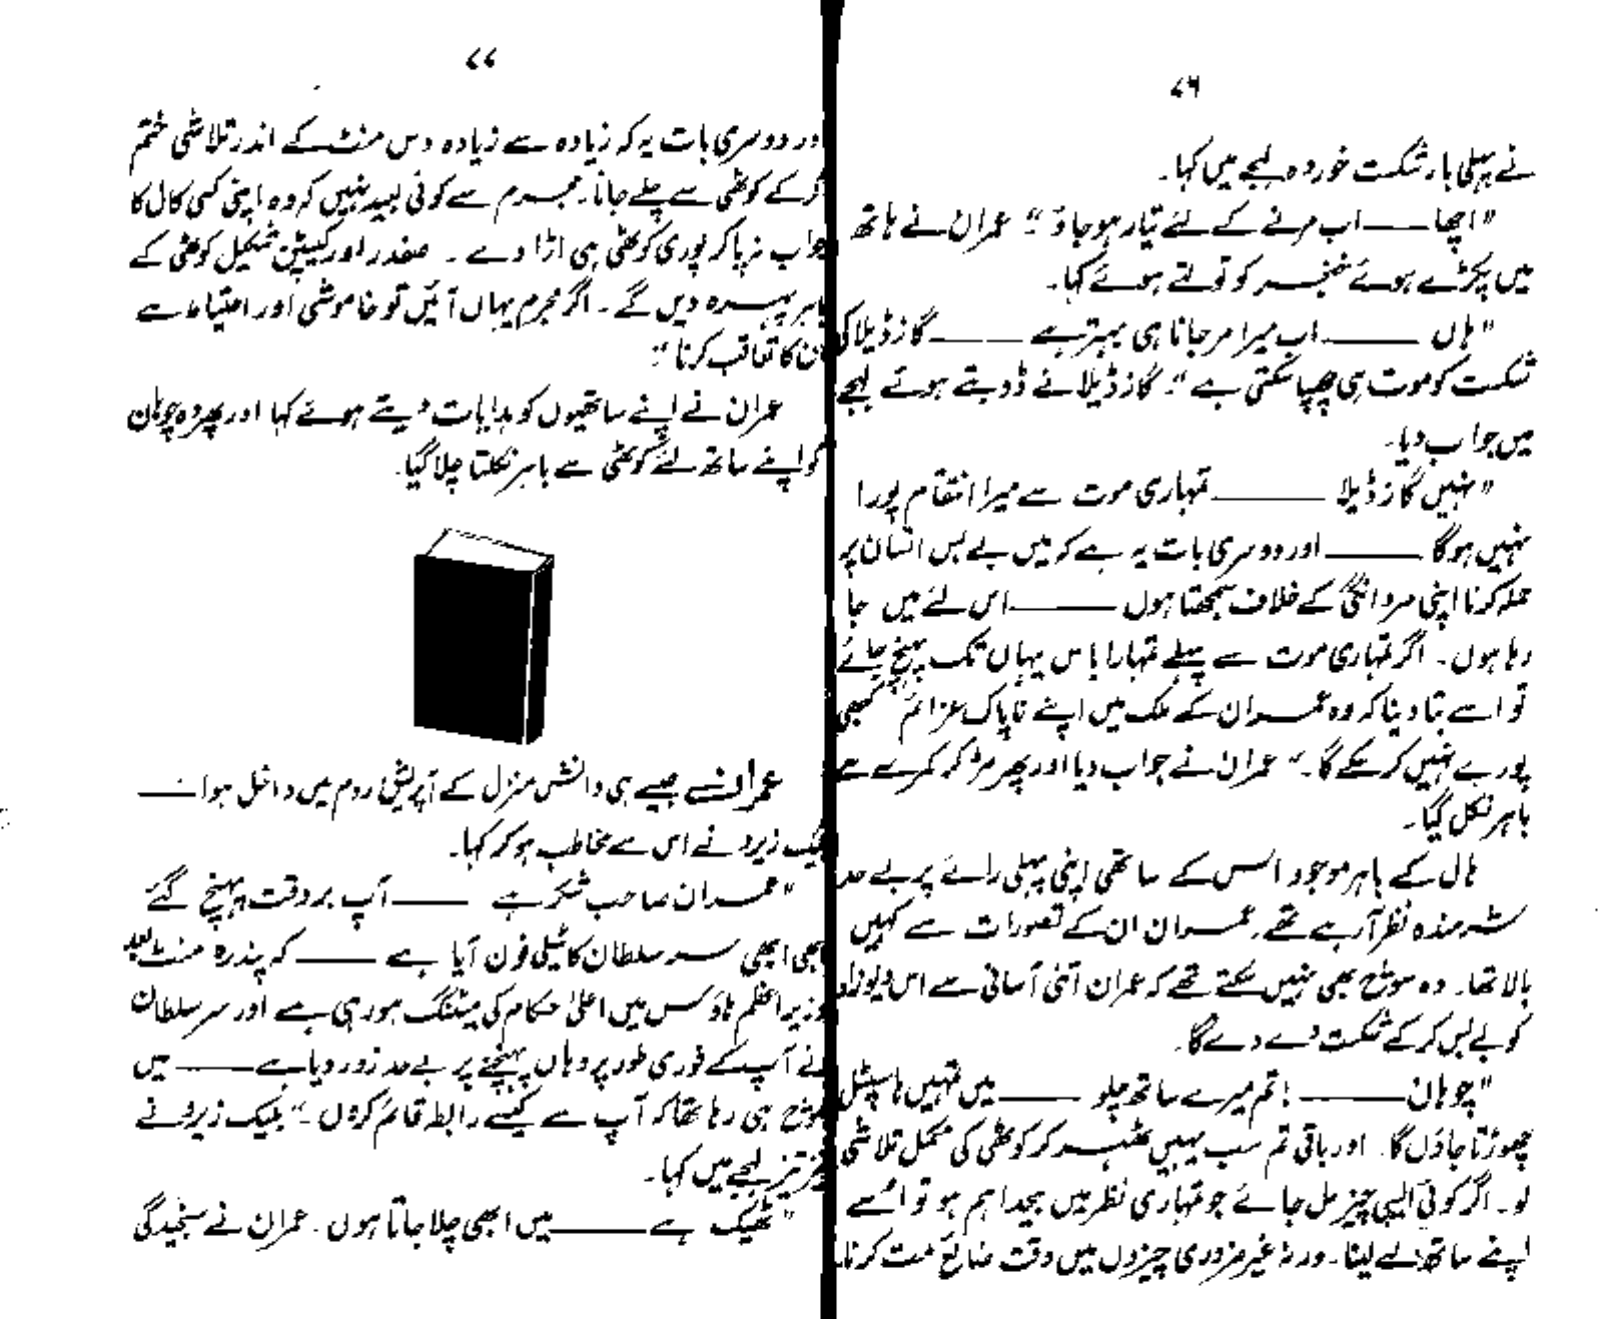 ۷۶
نے پہلی بار شکست خوردہ لہجے میں کہا۔
"اچھا ——— اب مرنے کے لئے تیار ہو جاؤ"۔ عمران نے ہاتھ
میں پکڑے ہوئے خنجر کو تولتے ہوئے کہا۔
"ہاں ——— اب میرا مر جانا ہی بہتر ہے ——— گازڈیلا کی
شکست کو موت ہی چھپا سکتی ہے"۔ گازڈیلا نے ڈوبتے ہوئے لہجے
میں جواب دیا۔
"نہیں گازڈیلا ——— تمہاری موت سے میرا انتقام پورا
نہیں ہوگا ——— اور دوسری بات یہ ہے کہ میں بے بس انسان پر
حملہ کرنا اپنی مردانگی کے خلاف سمجھتا ہوں ——— اس لئے میں جا
رہا ہوں۔ اگر تمہاری موت سے پہلے تمہارا باس یہاں تک پہنچ جائے
تو اسے بتا دینا کہ وہ عمران کے ملک میں اپنے ناپاک عزائم کبھی
پورے نہیں کر سکے گا۔" عمران نے جواب دیا اور پھر مڑ کر کمرے سے
باہر نکل گیا۔
ہال کے باہر موجود اس کے ساتھی اپنی پہلی رائے پر بے حد
شرمندہ نظر آرہے تھے۔ عمران ان کے تصورات سے کہیں
بالا تھا۔ وہ سوچ بھی نہیں سکتے تھے کہ عمران اتنی آسانی سے اس دیوزاد
کو بے بس کر کے شکست دے دے گا۔
"چوہان ——— تم میرے ساتھ چلو ——— میں تمہیں ہاسپٹل
چھوڑتا جاؤں گا۔ اور باقی تم سب یہیں ٹھہر کر کوٹھی کی مکمل تلاشی
لو۔ اگر کوئی ایسی چیز مل جائے جو تمہاری نظر میں بیحد اہم ہو تو اسے
اپنے ساتھ لے لینا۔ ورنہ غیر ضروری چیزوں میں وقت ضائع مت کرنا۔
۷۷
اور دوسری بات یہ کہ زیادہ سے زیادہ دس منٹ کے اندر تلاشی ختم
کر کے کوٹھی سے چلے جانا۔ مجرم سے کوئی بعید نہیں کہ وہ اپنی کسی کال کا
جواب نہ پا کر پوری کوٹھی ہی اڑا دے۔ صفدر اور کیپٹن شکیل کوٹھی کے
باہر پہرہ دیں گے۔ اگر مجرم یہاں آئیں تو خاموشی اور احتیاط سے
ان کا تعاقب کرنا"۔
عمران نے اپنے ساتھیوں کو ہدایات دیتے ہوئے کہا اور پھر وہ چوہان
کو اپنے ساتھ لئے کوٹھی سے باہر نکلتا چلا گیا۔
عمران نے جیسے ہی دانش منزل کے آپریشن روم میں داخل ہوا ——
بلیک زیرو نے اس سے مخاطب ہو کر کہا۔
"عمران صاحب شکر ہے ——— آپ بروقت پہنچ گئے
ابھی ابھی سر سلطان کا ٹیلی فون آیا ہے ——— کہ پندرہ منٹ بعد
وزیر اعظم ہاؤس میں اعلیٰ حکام کی میٹنگ ہو رہی ہے اور سر سلطان
نے آپ کے فوری طور پر وہاں پہنچنے پر بے حد زور دیا ہے ——— میں
سوچ ہی رہا تھا کہ آپ سے کیسے رابطہ قائم کروں۔" بلیک زیرو نے
تیز تیز لہجے میں کہا۔
"ٹھیک ہے ——— میں ابھی چلا جاتا ہوں۔ عمران نے سنجیدگی